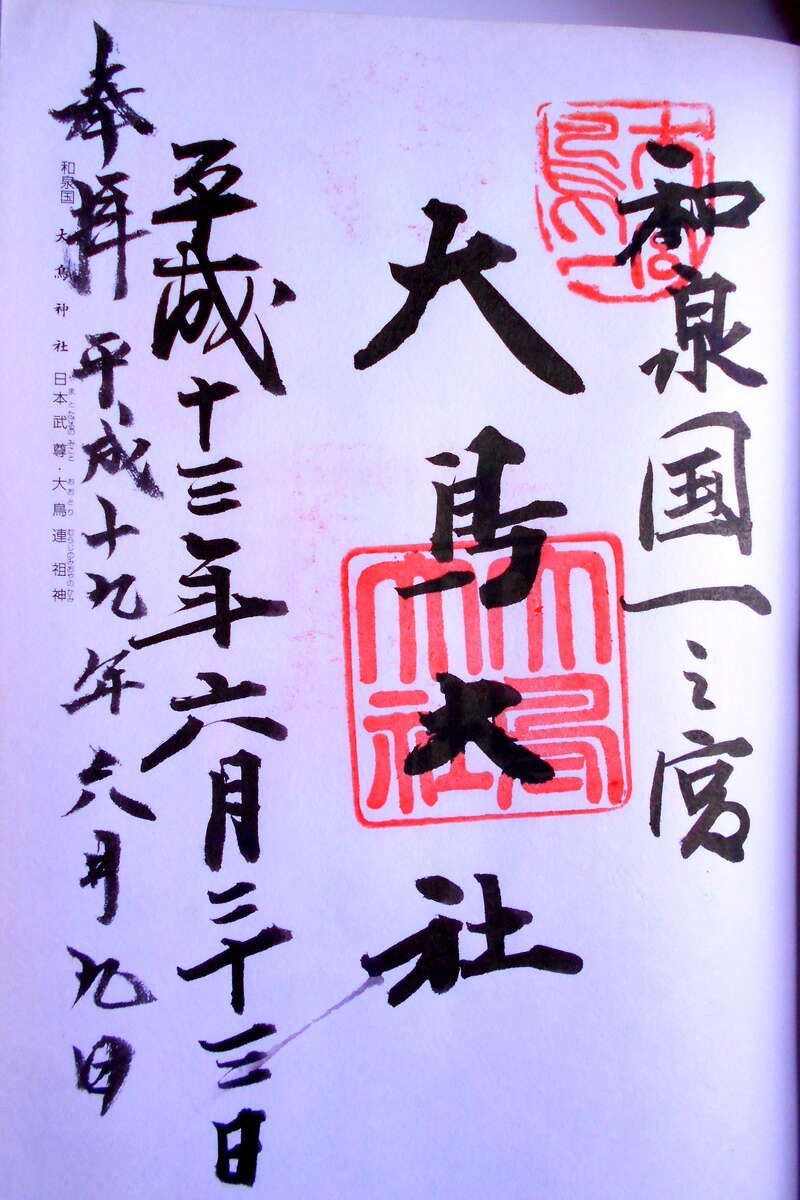 和泉国一之宮
大鳥大社
大鳥大社
平成十三年六月二十三日
奉拝 平成十九年六月九日
和泉国 大鳥神社 日本武尊・大鳥連祖神